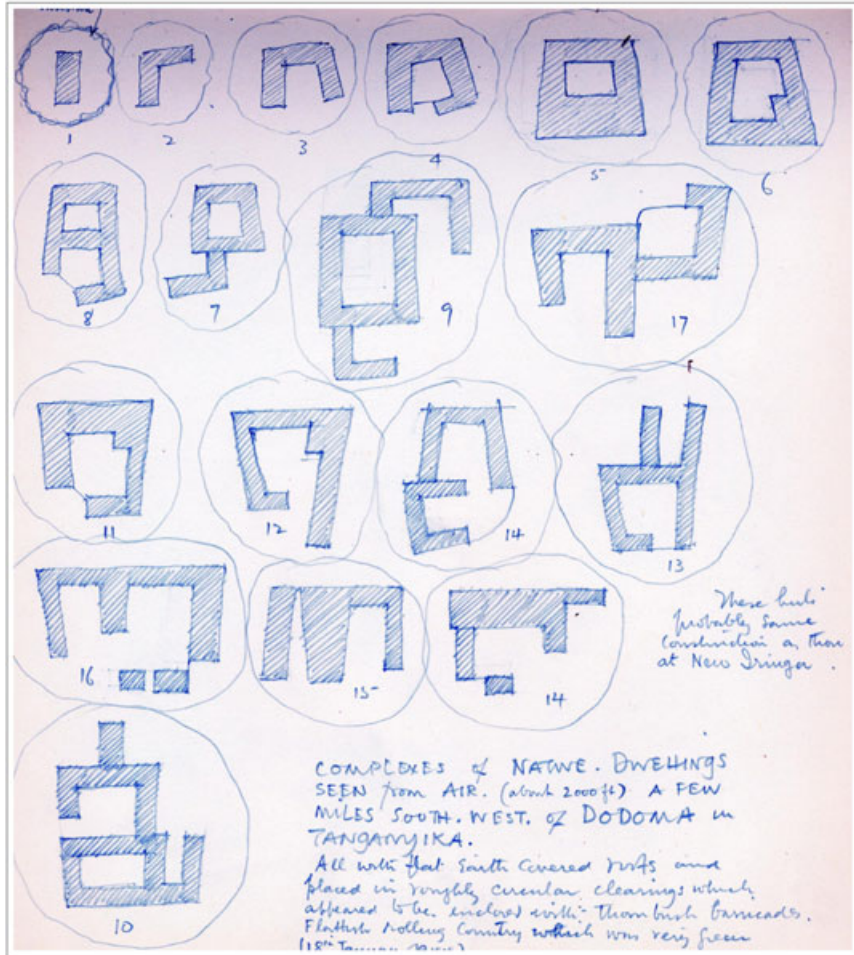 1
2
3
4
5
6
8
7
9
17
11
12
14
13
16
15
14
These huts
probably same
construction as those
at New Iringa.
10
COMPLEXES of NATIVE. DWELLINGS
SEEN from AIR. (about 2000ft) A FEW
MILES SOUTH. WEST. of DODOMA in
TANGANYIKA.
All with flat Earth Covered roofs and
placed in roughly circular clearings which
appeared to be enclosed with thornbush barricades.
Flattish rolling Country which was very green
(18th